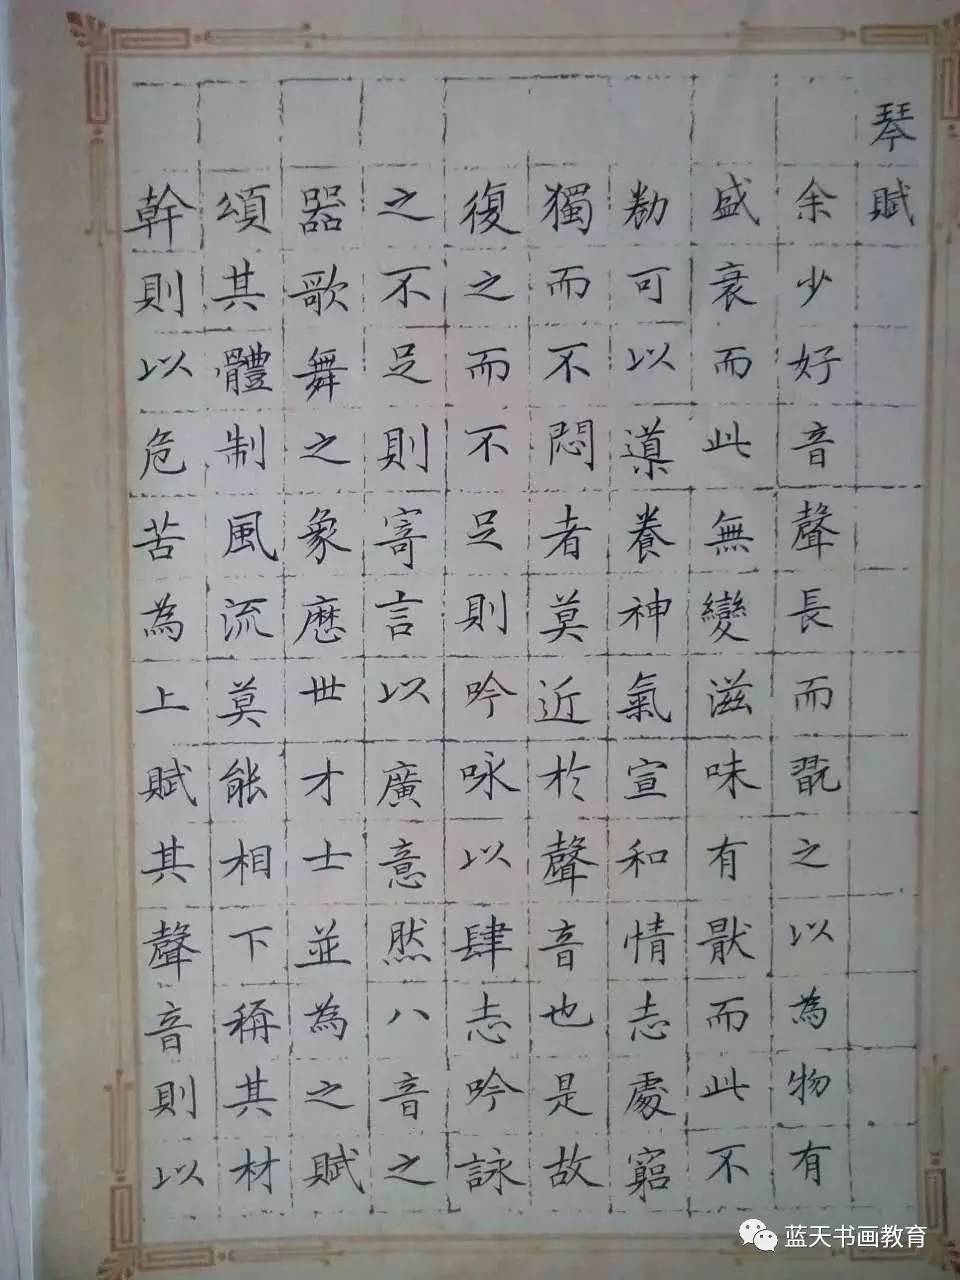 琴賦
余少好音聲長而翫之以為物有
盛衰而此無變滋味有猒而此不
勌可以導養神氣宣和情志處窮
獨而不悶者莫近於聲音也是故
復之而不足則吟咏以肆志吟詠
之不足則寄言以廣意然八音之
器歌舞之象歷世才士並為之賦
頌其體制風流莫能相下稱其材
幹則以危苦為上賦其聲音則以
蓝天书画教育